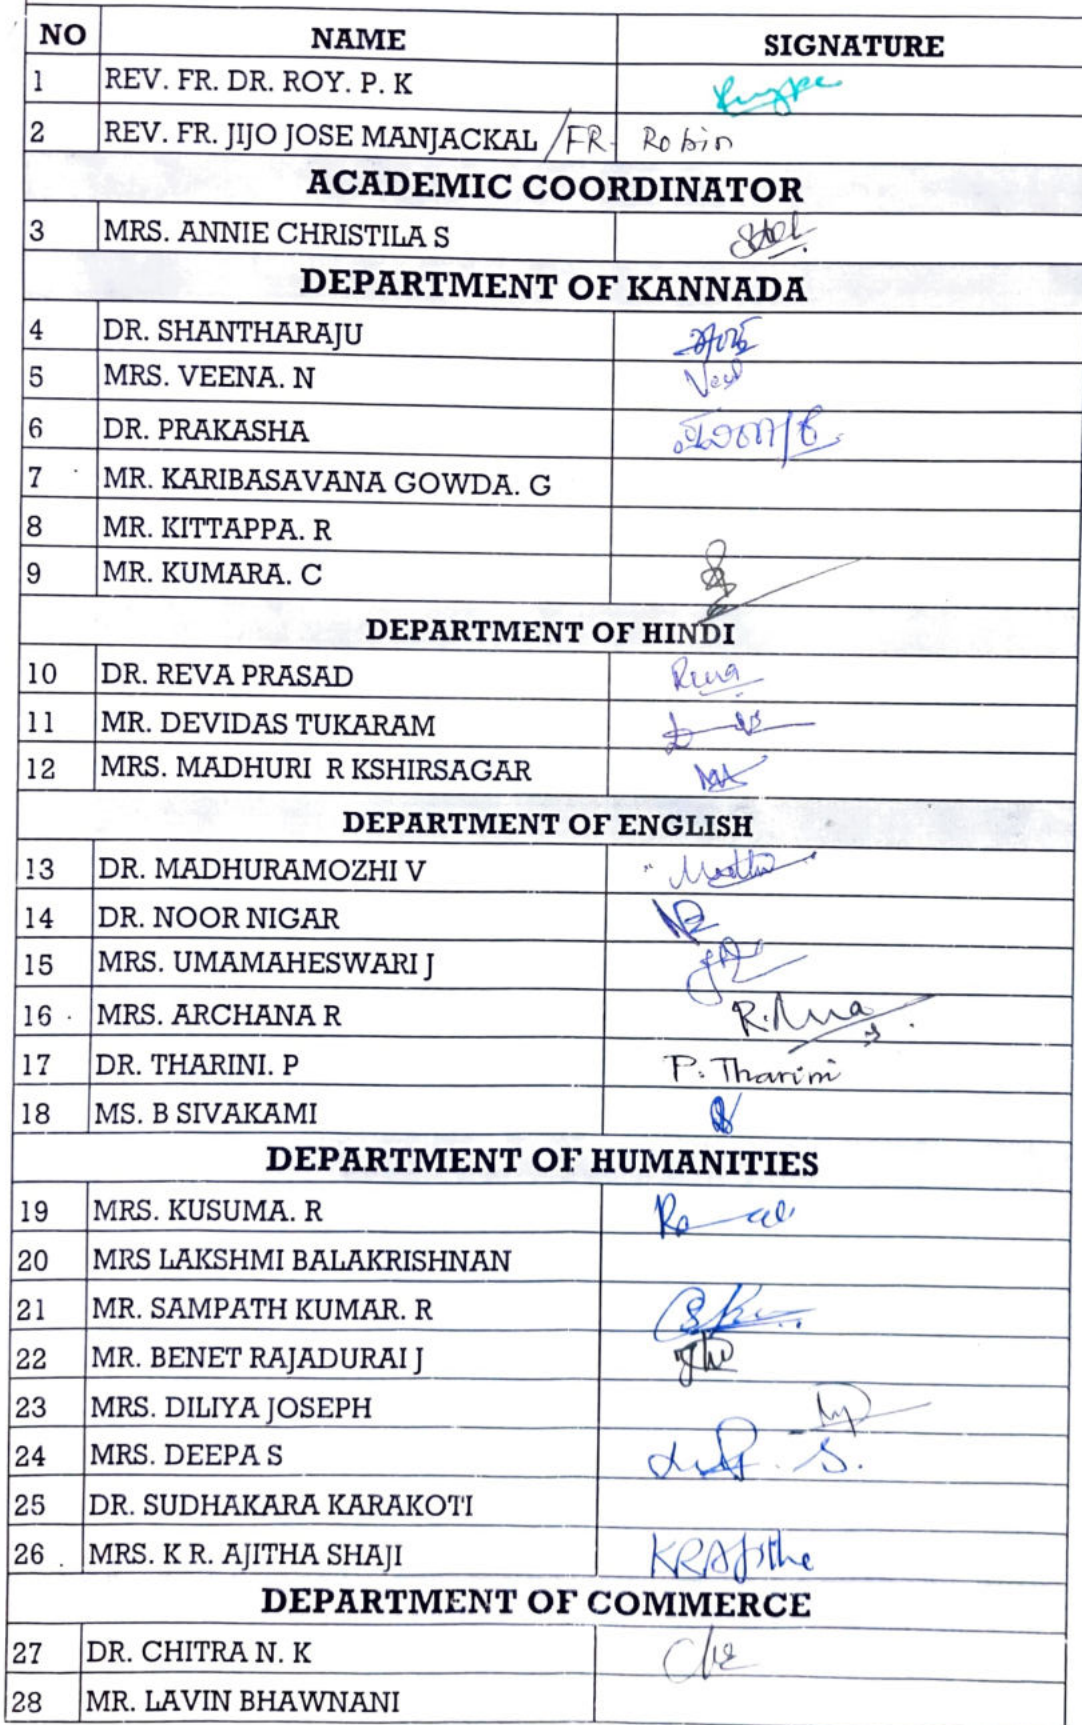 NO NAME SIGNATURE
1 REV. FR. DR. ROY. P. K
2 REV. FR. JIJO JOSE MANJACKAL /FR. Robin
ACADEMIC COORDINATOR
3 MRS. ANNIE CHRISTILA S
DEPARTMENT OF KANNADA
4 DR. SHANTHARAJU
5 MRS. VEENA. N
6 DR. PRAKASHA
7 MR. KARIBASAVANA GOWDA. G
8 MR. KITTAPPA. R
9 MR. KUMARA. C
DEPARTMENT OF HINDI
10 DR. REVA PRASAD
11 MR. DEVIDAS TUKARAM
12 MRS. MADHURI R KSHIRSAGAR
DEPARTMENT OF ENGLISH
13 DR. MADHURAMOZHI V
14 DR. NOOR NIGAR
15 MRS. UMAMAHESWARI J
16 MRS. ARCHANA R
17 DR. THARINI. P P. Tharini
18 MS. B SIVAKAMI
DEPARTMENT OF HUMANITIES
19 MRS. KUSUMA. R
20 MRS LAKSHMI BALAKRISHNAN
21 MR. SAMPATH KUMAR. R
22 MR. BENET RAJADURAI J
23 MRS. DILIYA JOSEPH
24 MRS. DEEPA S
25 DR. SUDHAKARA KARAKOTI
26 MRS. K R. AJITHA SHAJI KRAjithe
DEPARTMENT OF COMMERCE
27 DR. CHITRA N. K
28 MR. LAVIN BHAWNANI